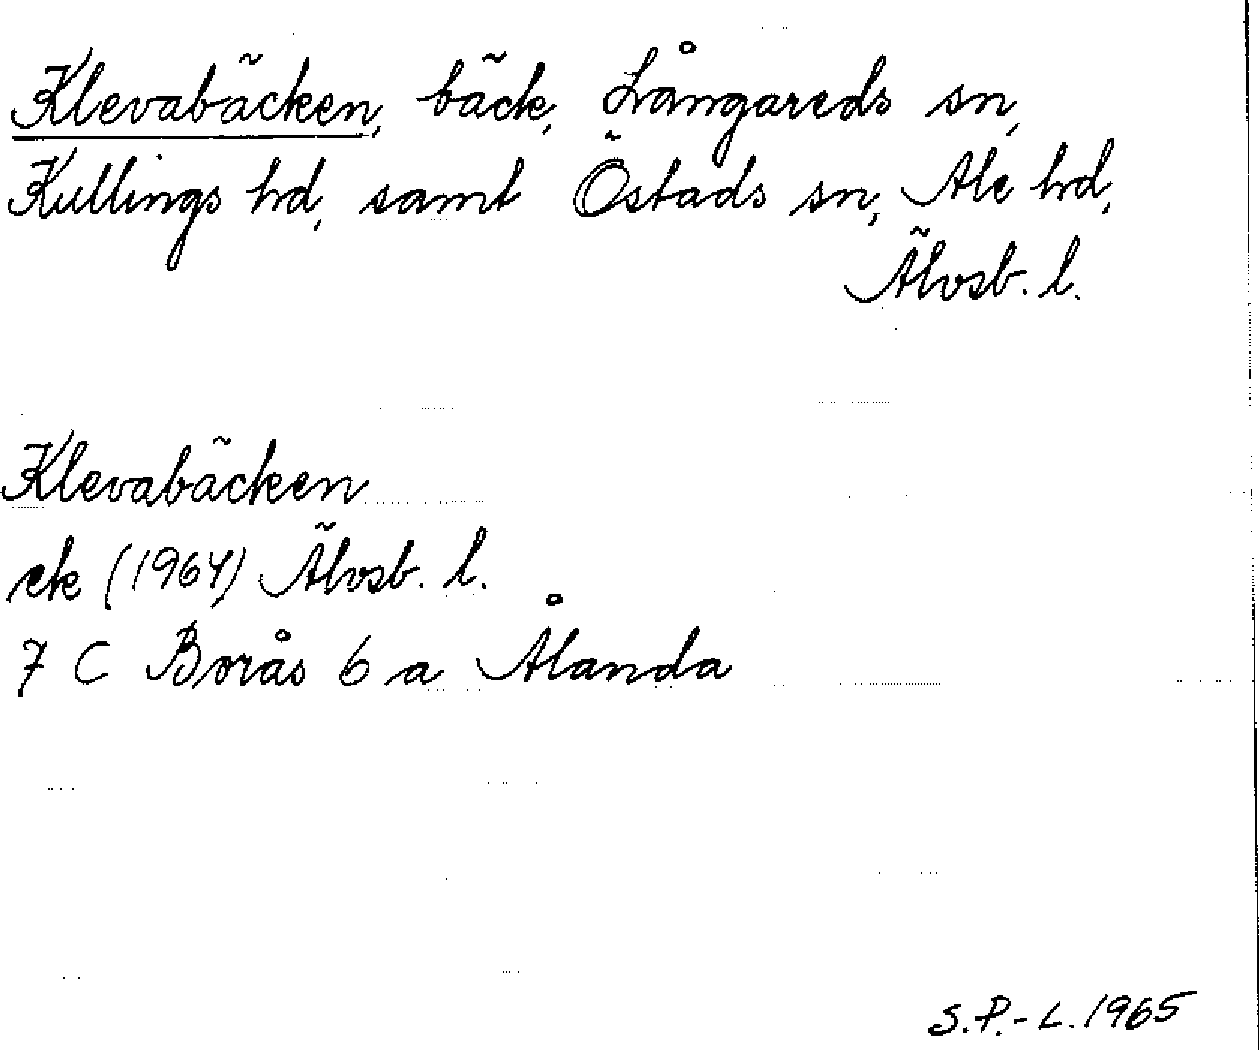 Klevabäcken, bäck, Långareds sn,
Kullings hd, samt Östads sn, Ale hd,
Älvsb. l.
Klevabäcken
ek (1964) Älvsb. l.
7 C Borås 6 a Ålanda
S.P.-L. 1965